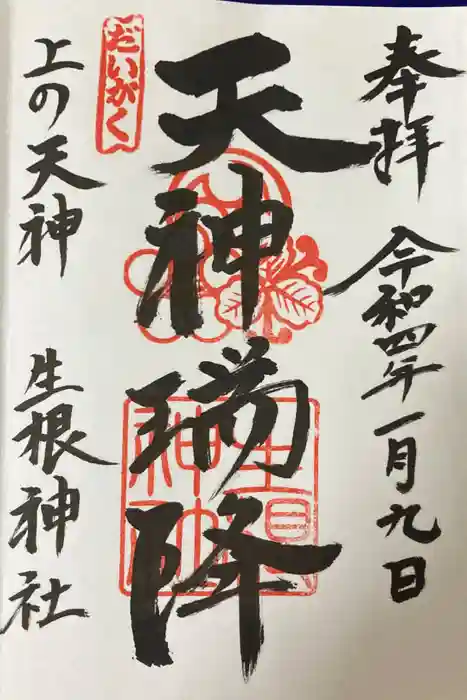 奉拝 令和四年一月九日
天神瑞降
だいがく
上の天神 生根神社